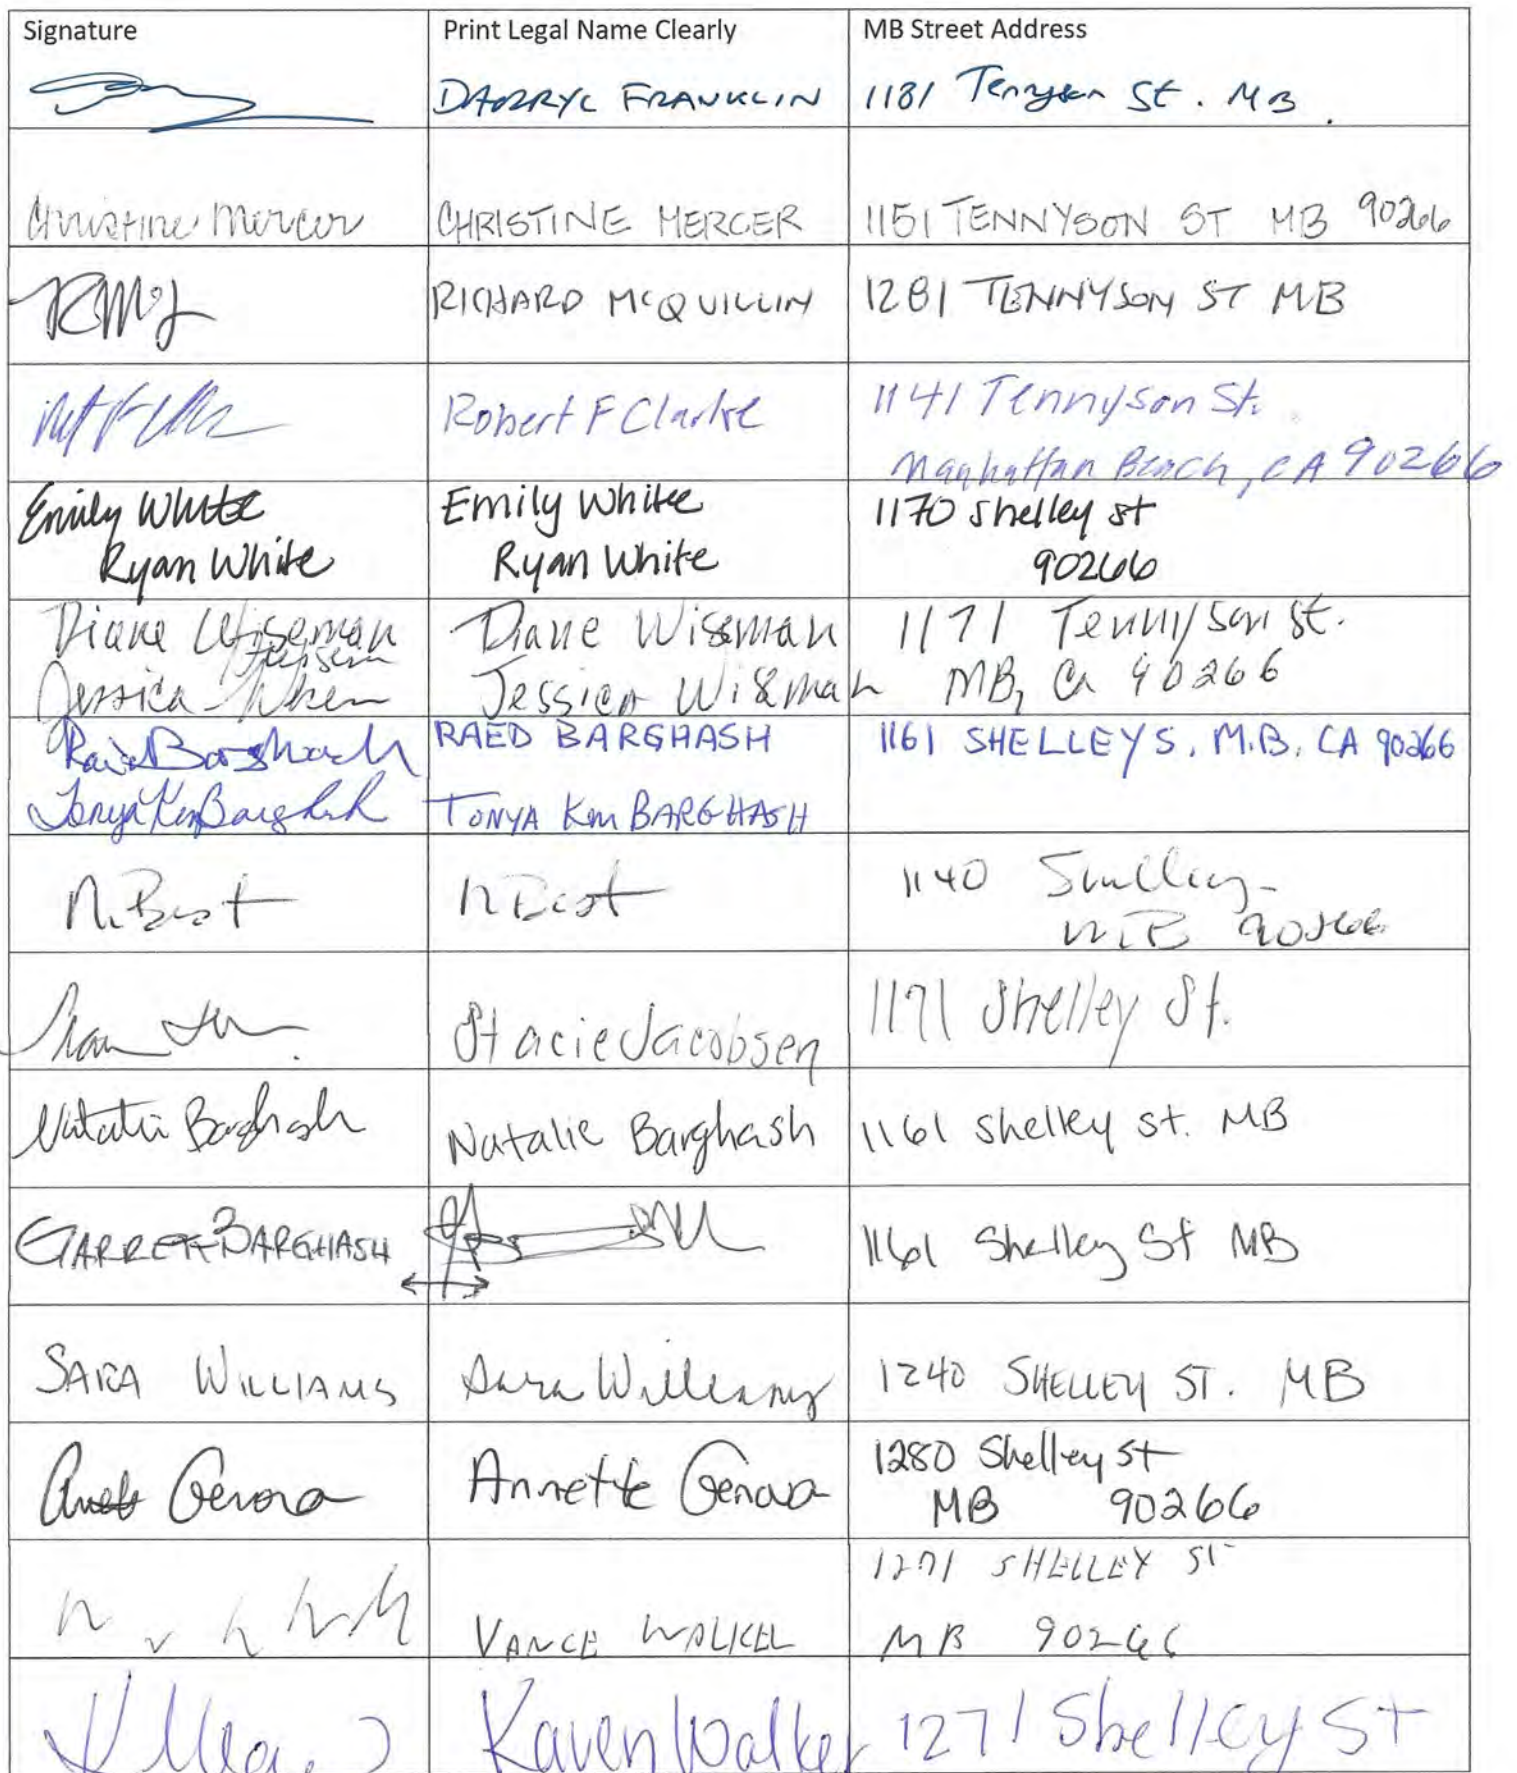 Signature Print Legal Name Clearly MB Street Address
DARRYL FRANKLIN 1181 Tennyson St. MB.
Christine Mercer CHRISTINE MERCER 1151 TENNYSON ST MB 90266
RICHARD MCQUILLIN 1281 TENNYSON ST MB
Robert F Clarke 1141 Tennyson St.
Manhattan Beach, CA 90266
Emily White Emily White 1170 Shelley st
Ryan White Ryan White 90266
Diane Wiseman Diane Wiseman 1171 Tennyson St.
Jessica Jessica Wiseman MB, Ca 90266
Raed Barghash RAED BARGHASH 1161 SHELLEY S. M.B. CA 90266
Tonya Kim Barghash TONYA Kim BARGHASH
N. Best N Best 1140 Shelley
MB 90266
Stacie Jacobsen 1171 Shelley St.
Natalie Barghash Natalie Barghash 1161 Shelley st. MB
GARRETT BARGHASH 1161 Shelley St MB
SARA WILLIAMS Sara Williams 1240 SHELLEY ST. MB
Annette Genova Annette Genova 1280 Shelley St
MB 90266
1271 SHELLEY ST
VANCE WALKER MB 90266
Karen Walker 1271 Shelley St